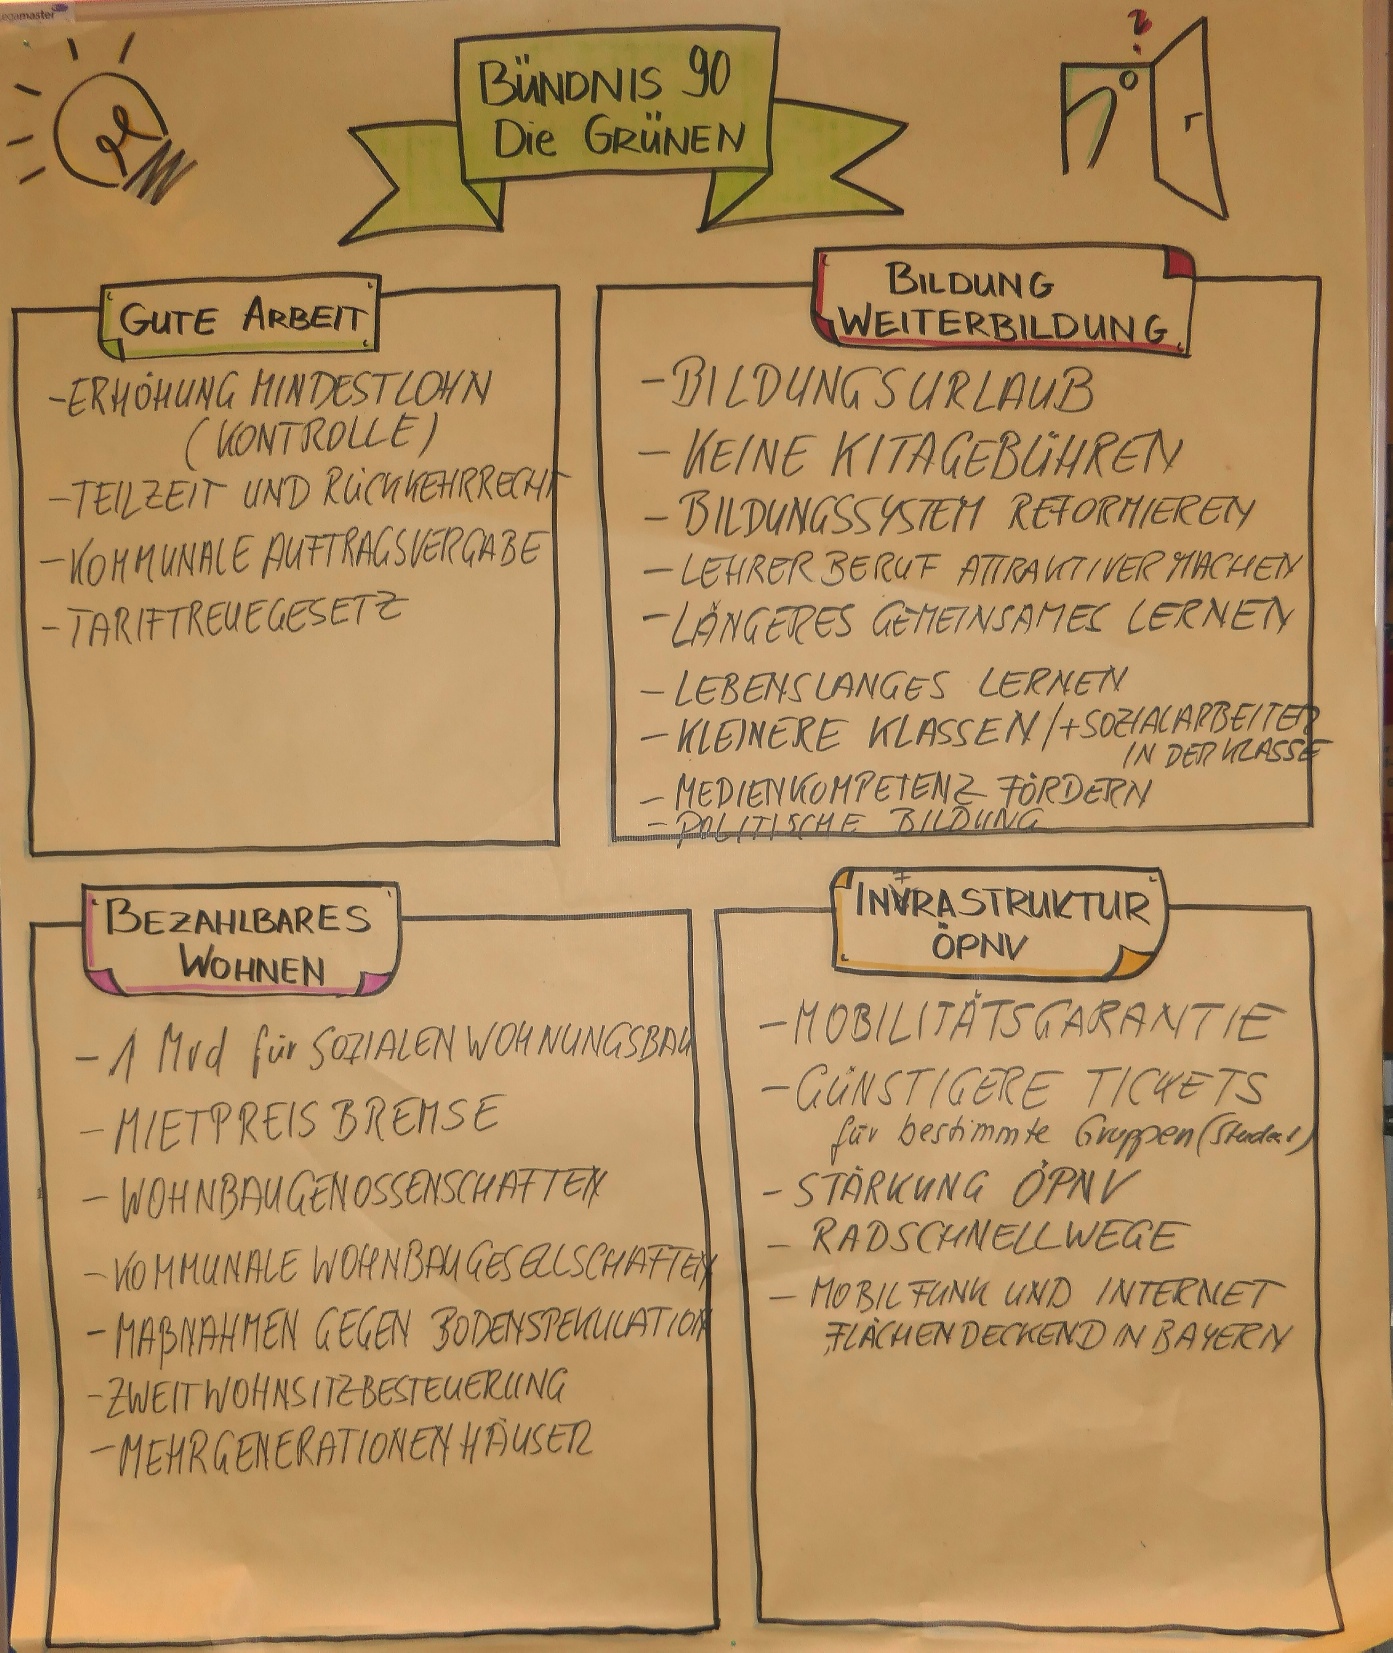 BÜNDNIS 90
Die GRÜNEN
GUTE ARBEIT
- ERHÖHUNG MINDESTLOHN
(KONTROLLE)
- TEILZEIT UND RÜCKKEHRRECHT
- KOMMUNALE AUFTRAGSVERGABE
- TARIFTREUEGESETZ
BILDUNG
WEITERBILDUNG
- BILDUNGSURLAUB
- KEINE KITAGEBÜHREN
- BILDUNGSSYSTEM REFORMIEREN
- LEHRERBERUF ATTRAKTIVER MACHEN
- LÄNGERES GEMEINSAMES LERNEN
- LEBENSLANGES LERNEN
- KLEINERE KLASSEN / + SOZIALARBEITER
IN DER KLASSE
- MEDIENKOMPETENZ FÖRDERN
- POLITISCHE BILDUNG
BEZAHLBARES
WOHNEN
- 1 Mrd für SOZIALEN WOHNUNGSBAU
- MIETPREISBREMSE
- WOHNBAUGENOSSENSCHAFTEN
- KOMMUNALE WOHNBAUGESELLSCHAFTEN
- MAßNAHMEN GEGEN BODENSPEKULATION
- ZWEITWOHNSITZBESTEUERUNG
- MEHRGENERATIONENHÄUSER
INFRASTRUKTUR
ÖPNV
- MOBILITÄTSGARANTIE
- GÜNSTIGERE TICKETS
für bestimmte Gruppen
- STÄRKUNG ÖPNV
- RADSCHNELLWEGE
- MOBILFUNK UND INTERNET
FLÄCHENDECKEND IN BAYERN